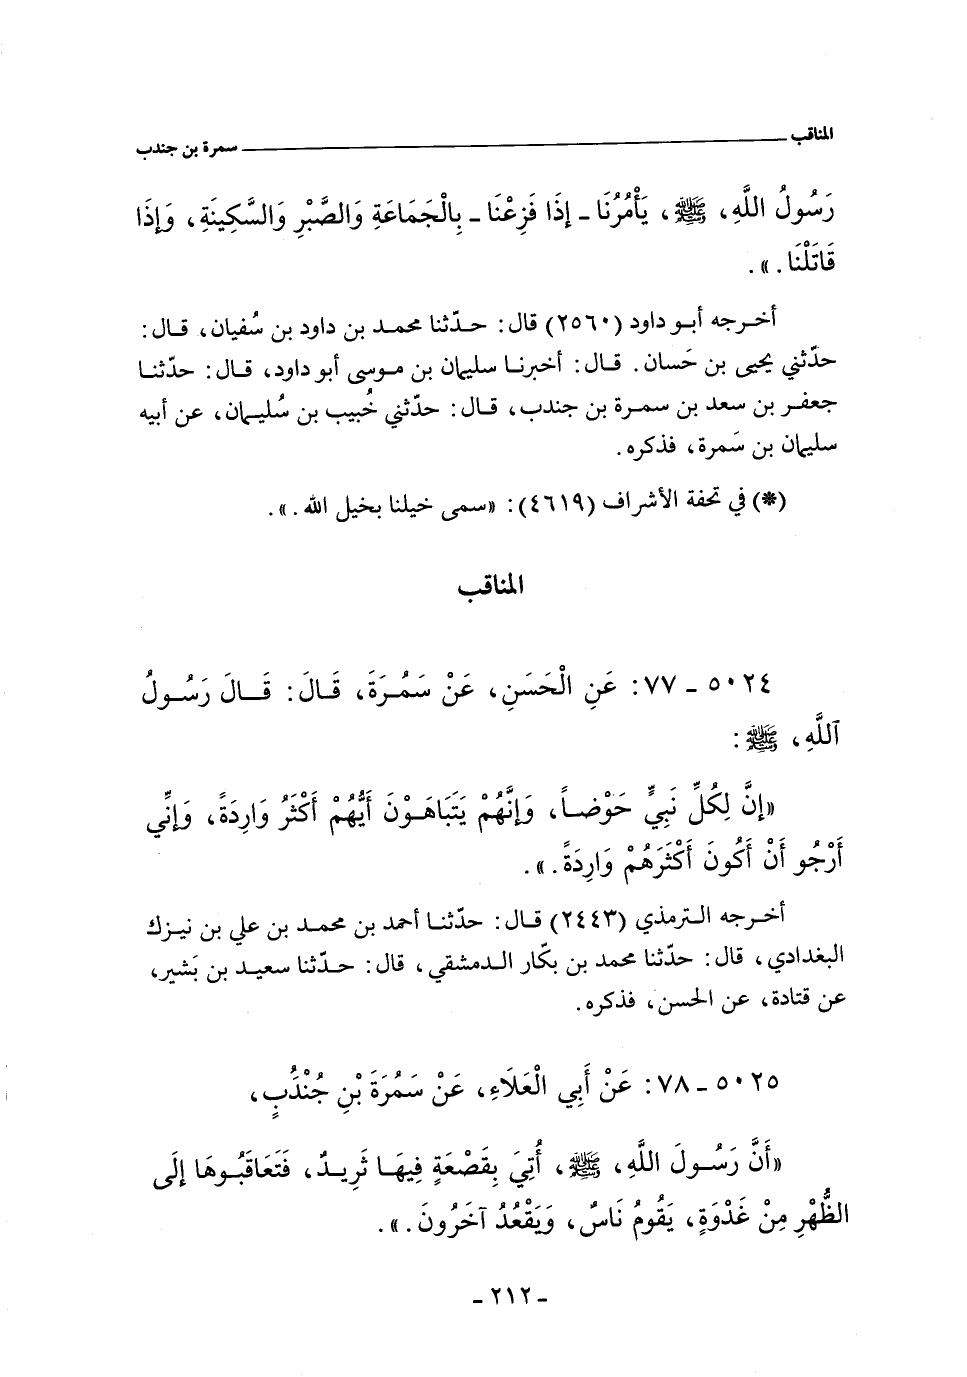 المناقب ــــــ سمرة بن جندب
رَسُولُ اللَّهِ، ﷺ، يَأْمُرُنَا - إِذَا فَزِعْنَا - بِالْجَمَاعَةِ وَالصَّبْرِ وَالسَّكِينَةِ، وَإِذَا
قَاتَلْنَا.».
أخرجه أبو داود (٢٥٦٠) قال: حدّثنا محمد بن داود بن سُفيان، قال:
حدّثني يحيى بن حَسان. قال: أخبرنا سليمان بن موسى أبو داود، قال: حدّثنا
جعفر بن سعد بن سمرة بن جندب، قال: حدّثني خُبيب بن سُليمان، عن أبيه
سليمان بن سَمرة، فذكره.
(*) في تحفة الأشراف (٤٦١٩): «سمى خيلنا بخيل الله.».
المناقب
٥٠٢٤ - ٧٧: عَنِ الْحَسَنِ، عَنْ سَمُرَةَ، قَالَ: قَالَ رَسُولُ
اللَّهِ، ﷺ:
«إِنَّ لِكُلِّ نَبِيٍّ حَوْضاً، وَإِنَّهُمْ يَتَبَاهَوْنَ أَيُّهُمْ أَكْثَرُ وَارِدَةً، وَإِنِّي
أَرْجُو أَنْ أَكُونَ أَكْثَرَهُمْ وَارِدَةً.».
أخرجه الترمذي (٢٤٤٣) قال: حدّثنا أحمد بن محمد بن علي بن نيزك
البغدادي، قال: حدّثنا محمد بن بكّار الدمشقي، قال: حدّثنا سعيد بن بَشير،
عن قتادة، عن الحسن، فذكره.
٥٠٢٥ - ٧٨: عَنْ أَبِي الْعَلَاءِ، عَنْ سَمُرَةَ بْنِ جُنْدُبٍ،
«أَنَّ رَسُولَ اللَّهِ، ﷺ، أُتِيَ بِقَصْعَةٍ فِيهَا ثَرِيدٌ، فَتَعَاقَبُوهَا إِلَى
الظُّهْرِ مِنْ غَدْوَةٍ، يَقُومُ نَاسٌ، وَيَقْعُدُ آخَرُونَ.».
- ٢١٢ -